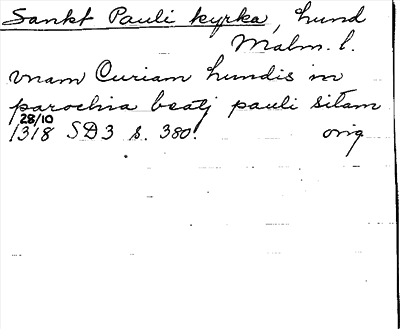 Sankt Pauli kyrka, hund
Malm. l.
vnam Curiam hundis in
parochia beatj pauli sitam
28/10
1318 SD3 s. 380. orig